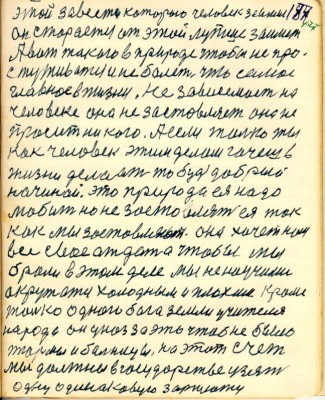 этой зависти которою человек земли 187
он старается от этой лутше займет
А вот такого в природе чтобы не про-
стуживатися не болет. что самое
главное в жизни. Не зависимост на
человеке она не застовляет она не
просит никого. А если толко ты
как человек этим делом хочеш в
жизни делат то будь добрый
начинай. это природа ея надо
любит но не застовлят ея так
как мы застовляем. она хочет нам
все свое отдат а чтобы мы
брали в этом деле мы не научились
окружати холодным и плохим кроме
толко одного бога земли учителя
народа он у нас за это чтоб не было
тюрмы и балницы, на этот счет
мы должны в государстве узят
одну одинаковую зарплату